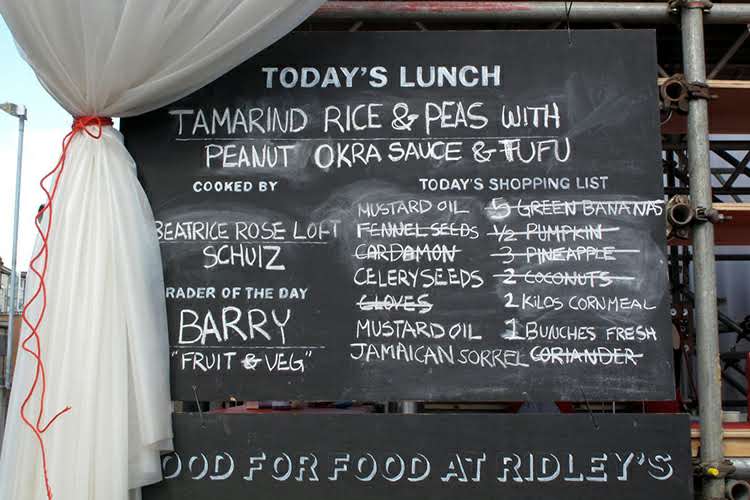 TODAY'S LUNCH
TAMARIND RICE & PEAS WITH
PEANUT OKRA SAUCE & FUFU
COOKED BY
BEATRICE ROSE LOFT
SCHUIZ
RADER OF THE DAY
BARRY
"FRUIT & VEG"
TODAY'S SHOPPING LIST
MUSTARD OIL
FENNEL SEEDS
CARDAMON
CELERYSEEDS
CLOVES
MUSTARD OIL
JAMAICAN SORREL
5 GREEN BANANAS
1/2 PUMPKIN
3 PINEAPPLE
2 COCONUTS
2 KILOS CORNMEAL
1 BUNCHES FRESH
CORIANDER
OOD FOR FOOD AT RIDLEY'S